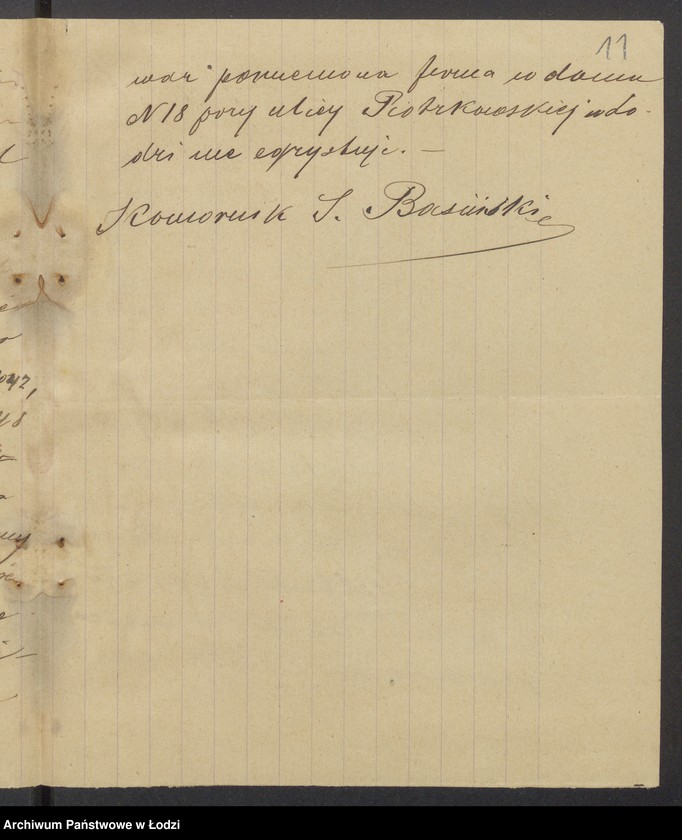 11
waż pomieniona firma w domu
N 18 przy ulicy Piotrkowskiej w Ło-
dzi nie egzystuje. —
Komornik S. Basiński
Archiwum Państwowe w Łodzi